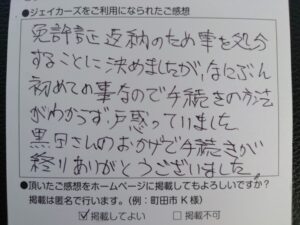 ●ジェイカーズをご利用になられたご感想
免許証返納のため車を処分
することに決めましたが、なにぶん
初めての事なので手続きの方法
がわからず、戸惑っていました
黒田さんのおかげで手続きが
終りありがとうございました。
●頂いたご感想をホームページに掲載してもよろしいですか?
掲載は匿名で行います。(例:町田市K様)
☑掲載してよい □掲載不可